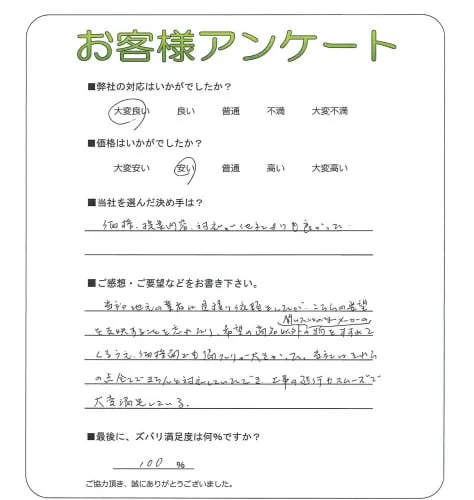 お客様アンケート
■弊社の対応はいかがでしたか？
大変良い 良い 普通 不満 大変不満
■価格はいかがでしたか？
大変安い 安い 普通 高い 大変高い
■当社を選んだ決め手は？
価格、提案内容、対応が他社よりも良かった。
■ご感想・ご要望などをお書き下さい。
当初地元の業者に見積り依頼をしたが、こちらの希望
聞いたことのないメーカーの
を反映することも 希望の商品以外の物をすすめて
くるうえ、価格面でも 大きかった。
の点全てできちんと対応していただき、工事の進行もスムーズで
大変満足している。
■最後に、ズバリ満足度は何%ですか？
100 %
ご協力頂き、誠にありがとうございました。